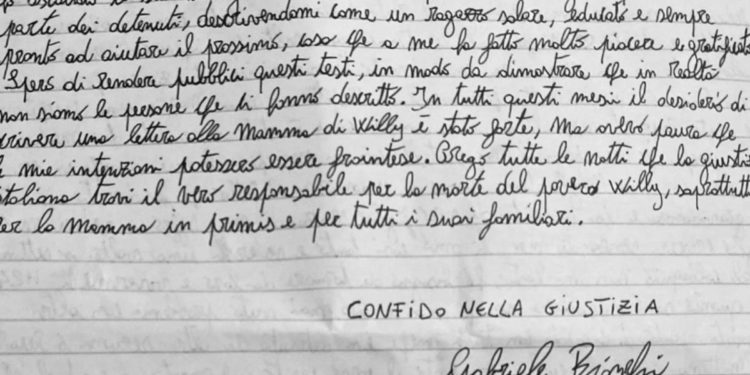 parte dei detenuti, descrivendomi come un ragazzo solare, educato e sempre
pronto ad aiutare il prossimo, cosa che a me ha fatto molto piacere e gratificato
Spero di rendere pubblici questi testi, in modo da dimostrare che in realtà
non siamo le persone che ti hanno descritto. In tutti questi mesi il desiderio di
crivere una lettera alla Mamma di Willy è stato forte, ma avevo paura che
mie intenzioni potessero essere fraintese. Prego tutte le notti che la giustizia
italiana trovi il vero responsabile per la morte del povero Willy, soprattutto
er la mamma in primis e per tutti i suoi familiari.
CONFIDO NELLA GIUSTIZIA
Gabriele Bianchi